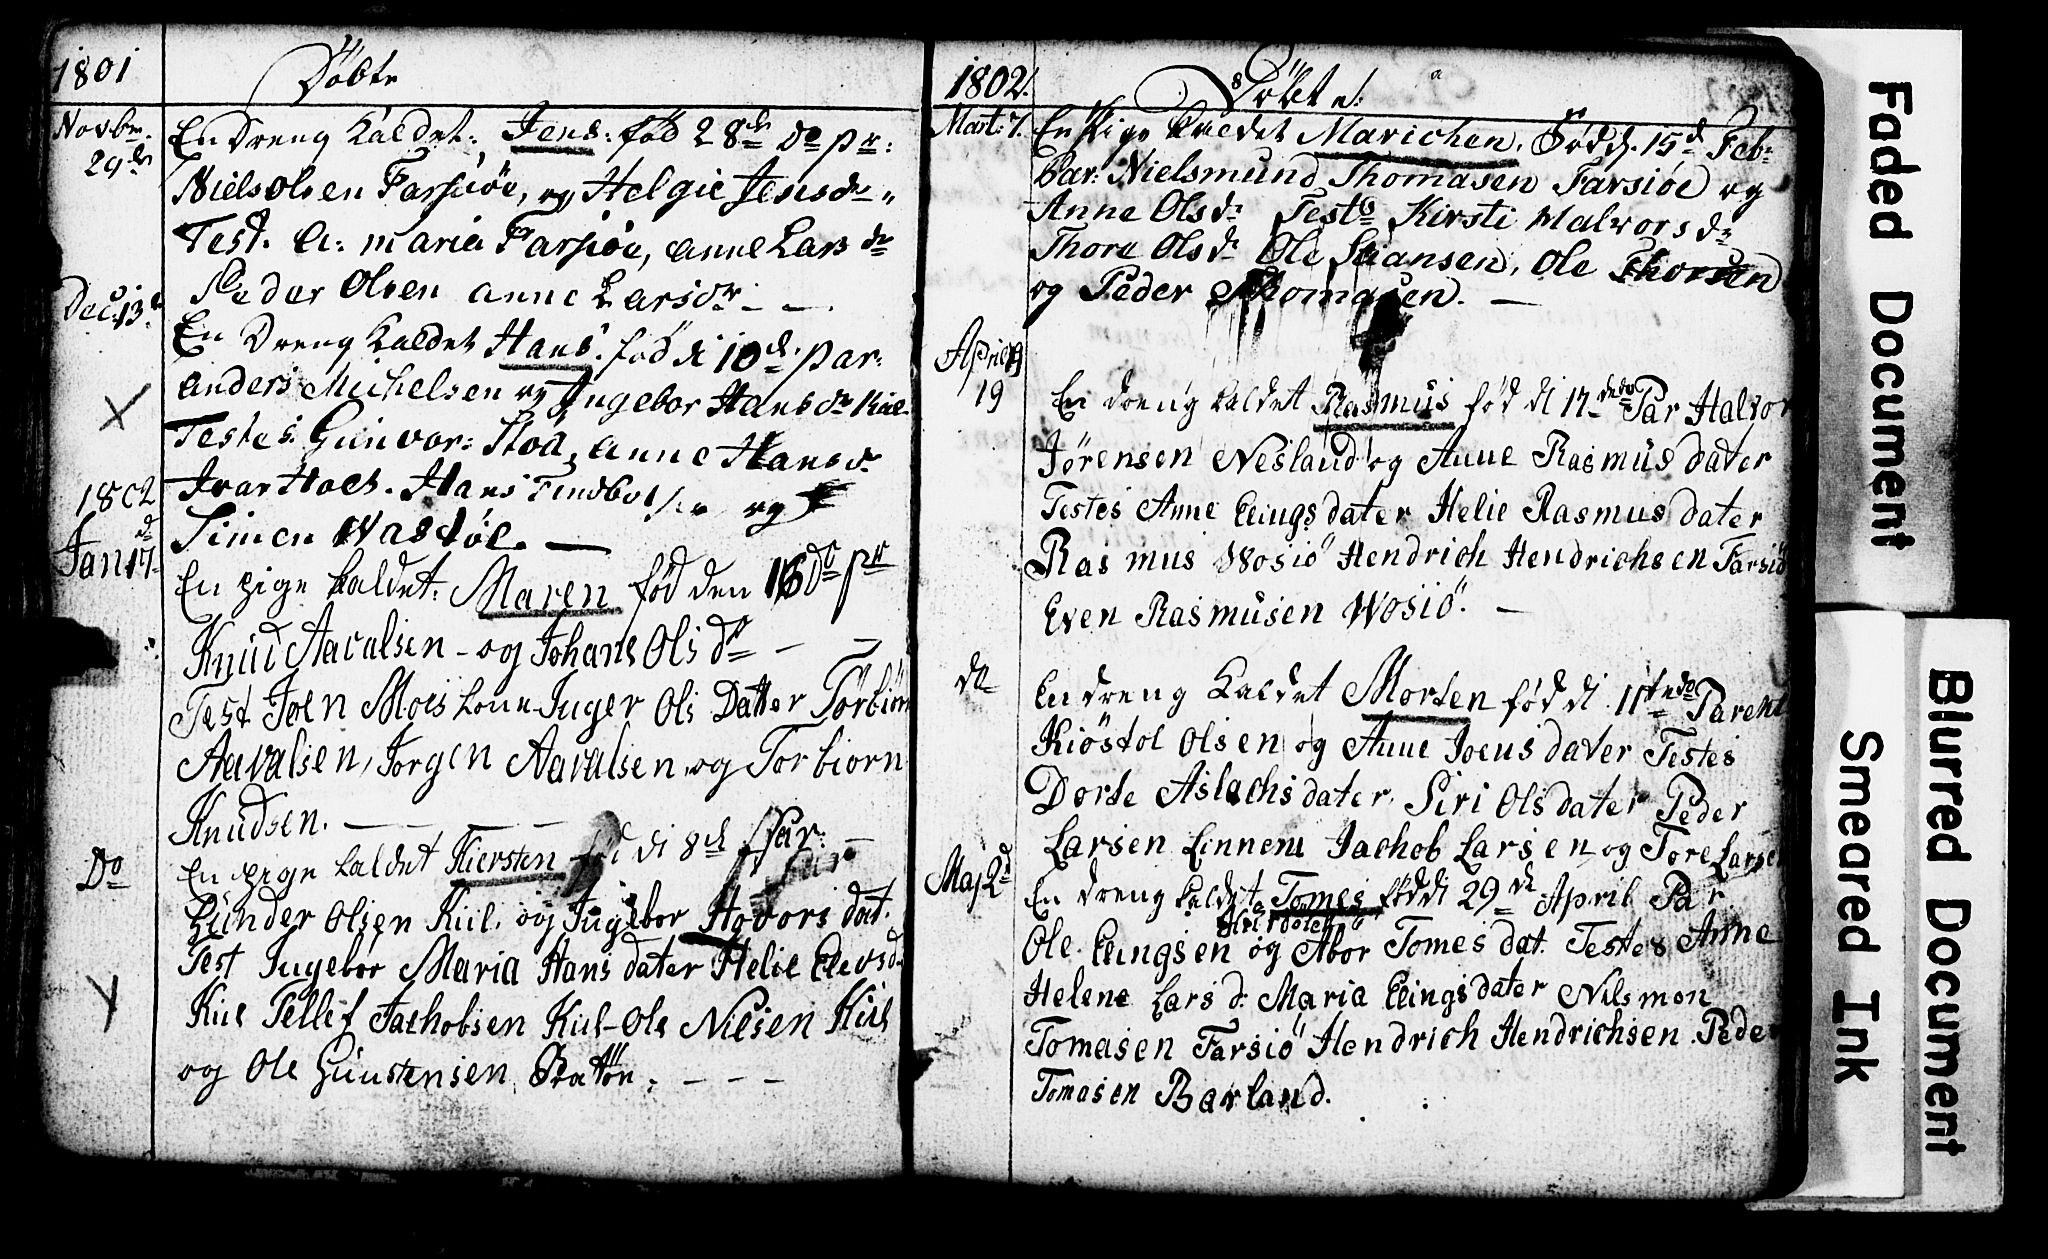 1801 Döbte
Novbr. 29de En Dreng kaldet: Jens: föd 28de do pr:
Niels Olsen Farsiöe, og Helgie Jensdr
Test. A: Maria Farsiöe, Anne Lars dr
Peder Olsen Anne Larsdr - -
Dec: 13 En Dreng kaldet Hans. föd di 10de par:
Anders Michelsen og Ingebor Hans dr Kiil
Testes Gunvor: Stoa, Anne Hansdr
Ivar Hoel. Hans og
Simen Wasiöe. —
1802
Jan 17 d En pige kaldet: Maren föd den 16 do pr
Knud Aavalsen - og Johane Ols dr —
Test Joen Moes kone Inger Ols Datter Törbiörn
Aavalsen, Jorgen Aavalsen og Torbiorn
Knudsen. — — —
Do En pige kaldet Kiersten föd di 8de Par: —
Gunder Olsen Kiil. og Ingebor Hovors dat.
Test Ingebor Maria Hans dater Helie Elevsd.
Kiil Tellef Jachobsen Kiil - Ole Nilsen Kiil
og Ole Guustensen Bratön. - - -
1802. Döbte:
Mart: 7. En Pige kaldet Marichen. Född. 15d Feb:
Par: Nielsmund Thomasen Farsiöe og
Anne Olsdr Tests Kirsti Halvorsdr
Thore Olsdr Ole Hansen, Ole Thorsen
og Peder Thomasen. —
April 19 En dreng kaldet Rasmus föd di 17de do Par Halvor
Jörensen Nesland og Anne Rasmus dater
Testes Anne Elings dater Helie Rasmus dater
Rasmus Wosiö Hendrich Hendrichsen Farsiö
Even Rasmusen Wosiö. —
do En dreng kaldet Morten föd di 11te do Parent
Kiöstol Olsen og Anne Joens dater Testes
Dorte Aslachs dater. Siri Ols dater Peder
Larsen Linnem Jachob Larsen og Tore Larsen
Maj 2d En dreng kaldet Tomes föd di 29de April Par
Ole Elingsen og Abor Tomes dat. Testes Anne
Helene Lars d. Maria Elings dater Nilsmon
Tomasen Farsiö Hendrich Hendrichsen Peder
Tomasen Barland.
Faded Document
Smeared Ink
Blurred Document